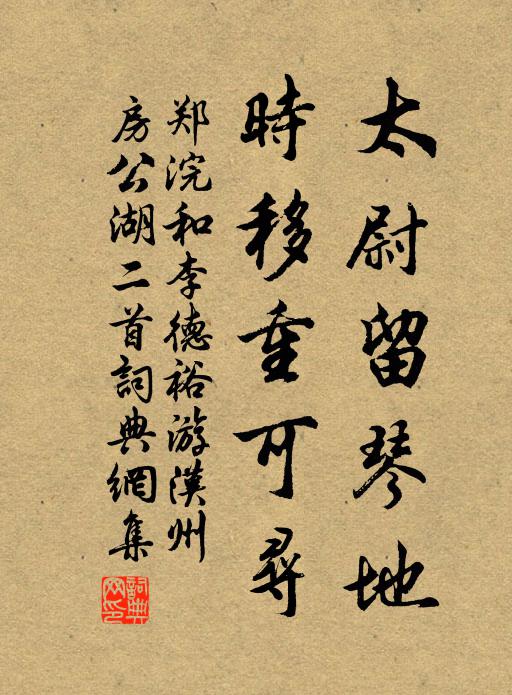 太尉留琴地
時移重可尋
郑浣和李德裕游漢州
房公湖二首詞典網集
詞典
网印